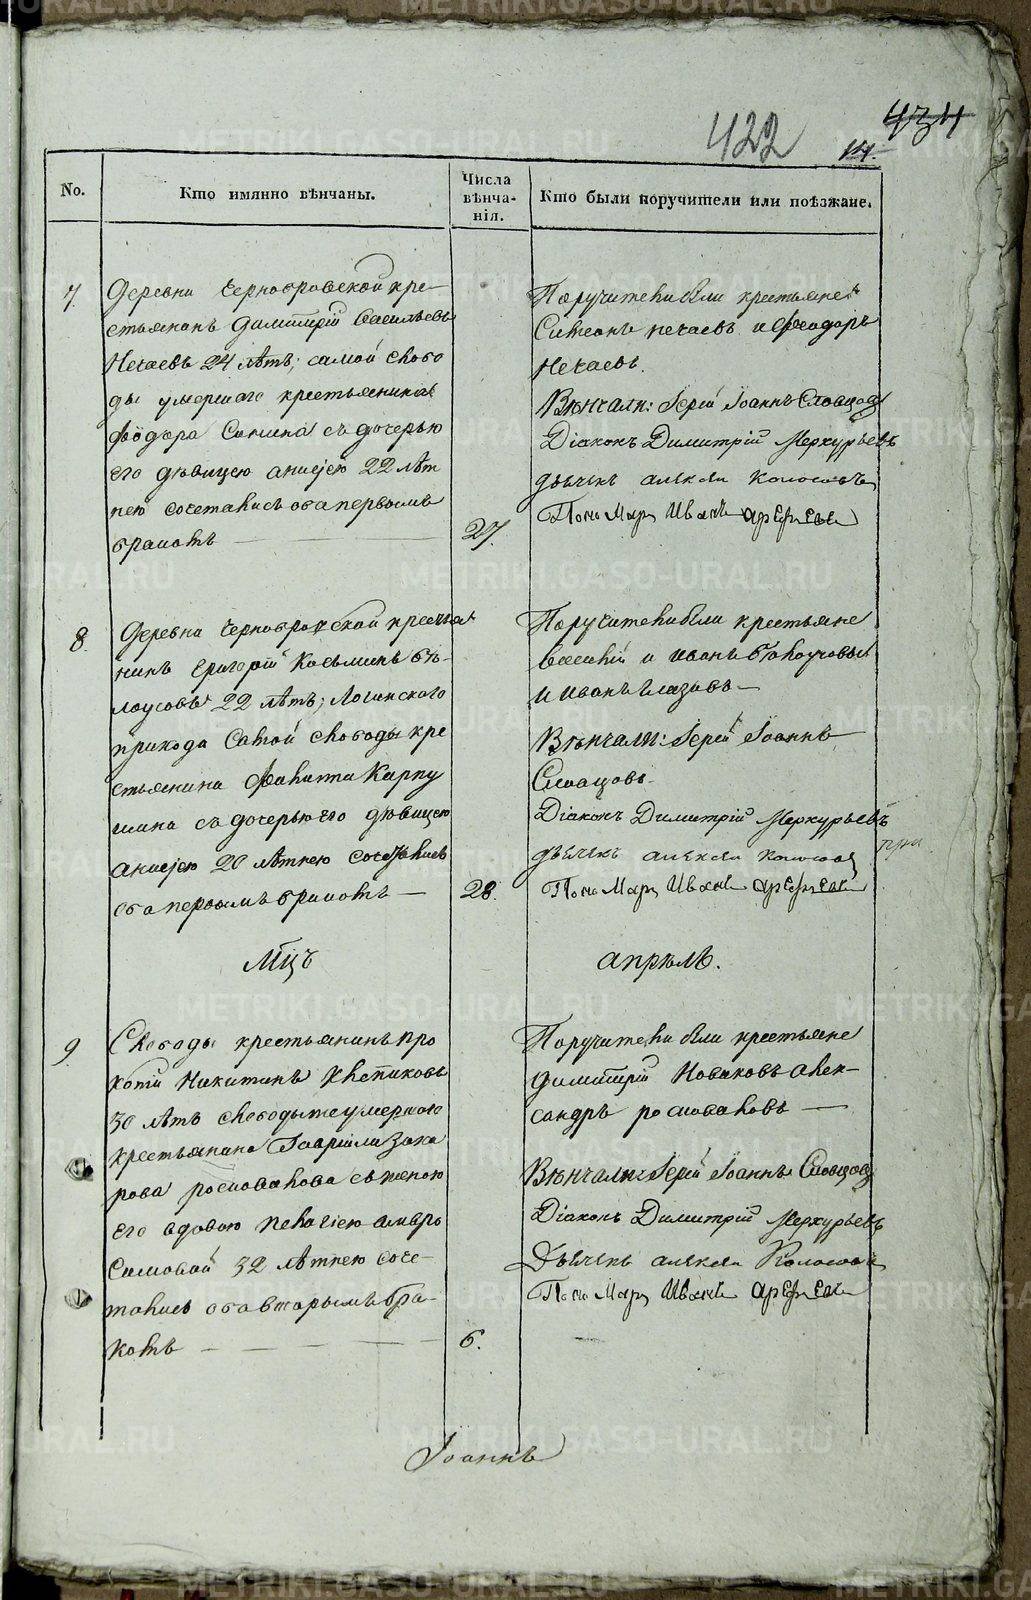 422
434
No.
Кто имянно вѣнчаны.
Числа вѣнча-нія.
Кто были поручители или поѣзжане.
7.
Деревни Чернобровской кре-
стьянинъ Димитрій Васильевъ
Нечаевъ 24 лѣтъ; самой слобо
ды умершаго крестьянина
Ѳеодора Санина съ дочерью
его дѣвицею Анисіею 22 лѣт
нею сочетались оба первымъ
бракомъ
27.
Поручители были крестьяне
Симеонъ Нечаевъ и Ѳеодоръ
Нечаевъ.
Вѣнчали: Іерей Іоаннъ Словцов
Діаконъ Димитрій Меркурьевъ
дьячекъ Алексѣй
Пономарь Иванъ Арефьевъ
8.
Деревни Чернобровской крестья
нинъ Григорій Косьминъ Бѣ-
лоусовъ 22 лѣтъ;
прихода самой слободы кре
стьянина Филиппа Карпу
шина съ дочерью его дѣвицею
Анисіею 20 лѣтнею сочетались
оба первымъ бракомъ
28.
Поручители были крестьяне
Василій и Иванъ Бѣлоусовы
и Иванъ Глазовъ
Вѣнчали: Іерей Іоаннъ
Словцовъ.
Діаконъ Димитрій Меркурьевъ
дьячекъ Алексѣй
Пономарь Иванъ Арефьевъ
при
Мцъ
Апрѣль.
9.
Слободы крестьянинъ Про
копій Никитинъ
30 лѣтъ слободы же умершаго
крестьянина Гавріила Заха
рова съ женою
его вдовою Пелагіею Амвро
симовой 32 лѣтнею соче-
тались оба вторымъ бра-
комъ
6.
Поручители были крестьяне
Димитрій Новаковъ Алек-
сандръ
Вѣнчали: Іерей Іоаннъ Словцов
Діаконъ Димитрій Меркурьевъ
Дьячекъ Алексѣй
Пономарь Иванъ Арефьевъ
Іоаннъ
METRIKI.GASO-URAL.RU